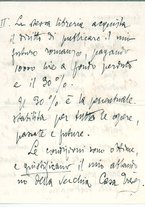 II. La stessa libreria acquista
il diritto di publicare il mio
futuro romanzo, pagando
10000 lire a fondo perduto
e il 30%.
Il 30% è la percentuale
stabilita per tutte le opere,
passate e future.
Le condizioni sono ottime
e giustificano il mio abbando
no della vecchia Casa